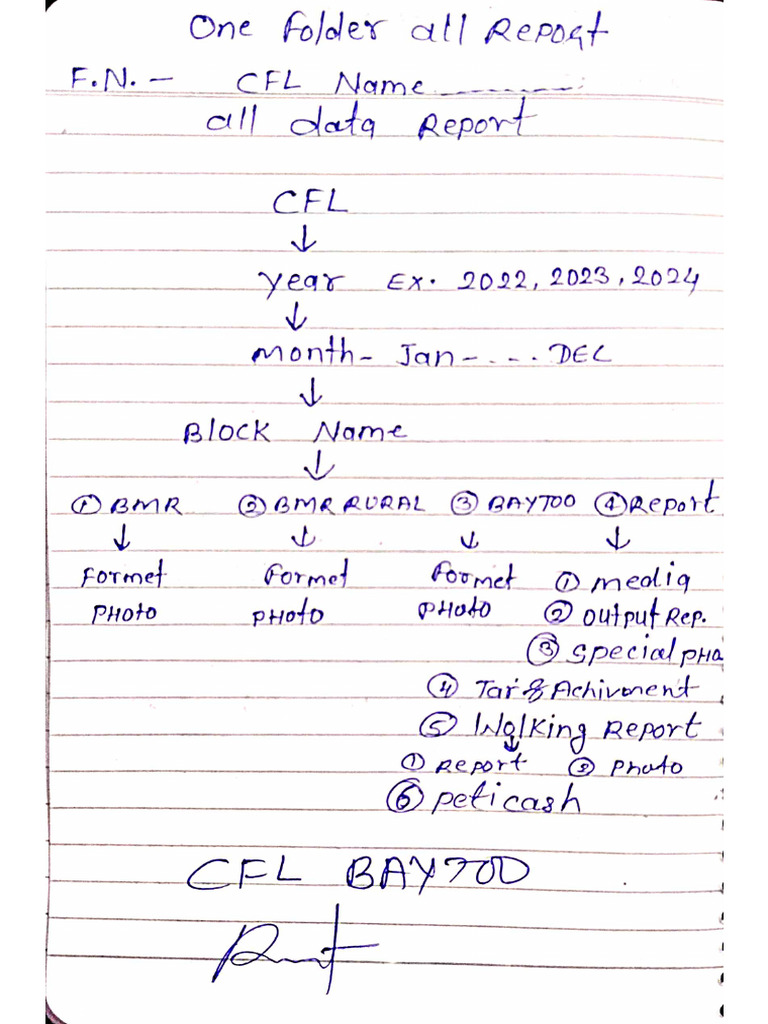 One Folder all Report
F.N. - CFL Name ...........
all data Report
CFL
↓
year Ex. 2022, 2023, 2024
↓
month - Jan - .... DEC
↓
Block Name
↓
① BMR ② BMR RURAL ③ BAYTOO ④ Report
↓ ↓ ↓ ↓
Formet Formet Formet ① media
PHoto PHoto PHoto ② output Rep.
③ special PHo
④ Tar & Achivment
⑤ Wolking Report
↓
① Report ② Photo
⑥ peticash
CFL BAYTOO